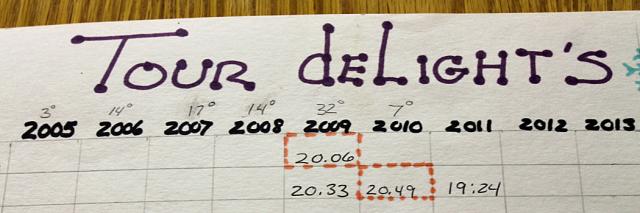 TOUR deLIGHT'S
3° 14° 17° 14° 32° 7°
2005 2006 2007 2008 2009 2010 2011 2012 2013
20.06
20.33 20.49 19:24